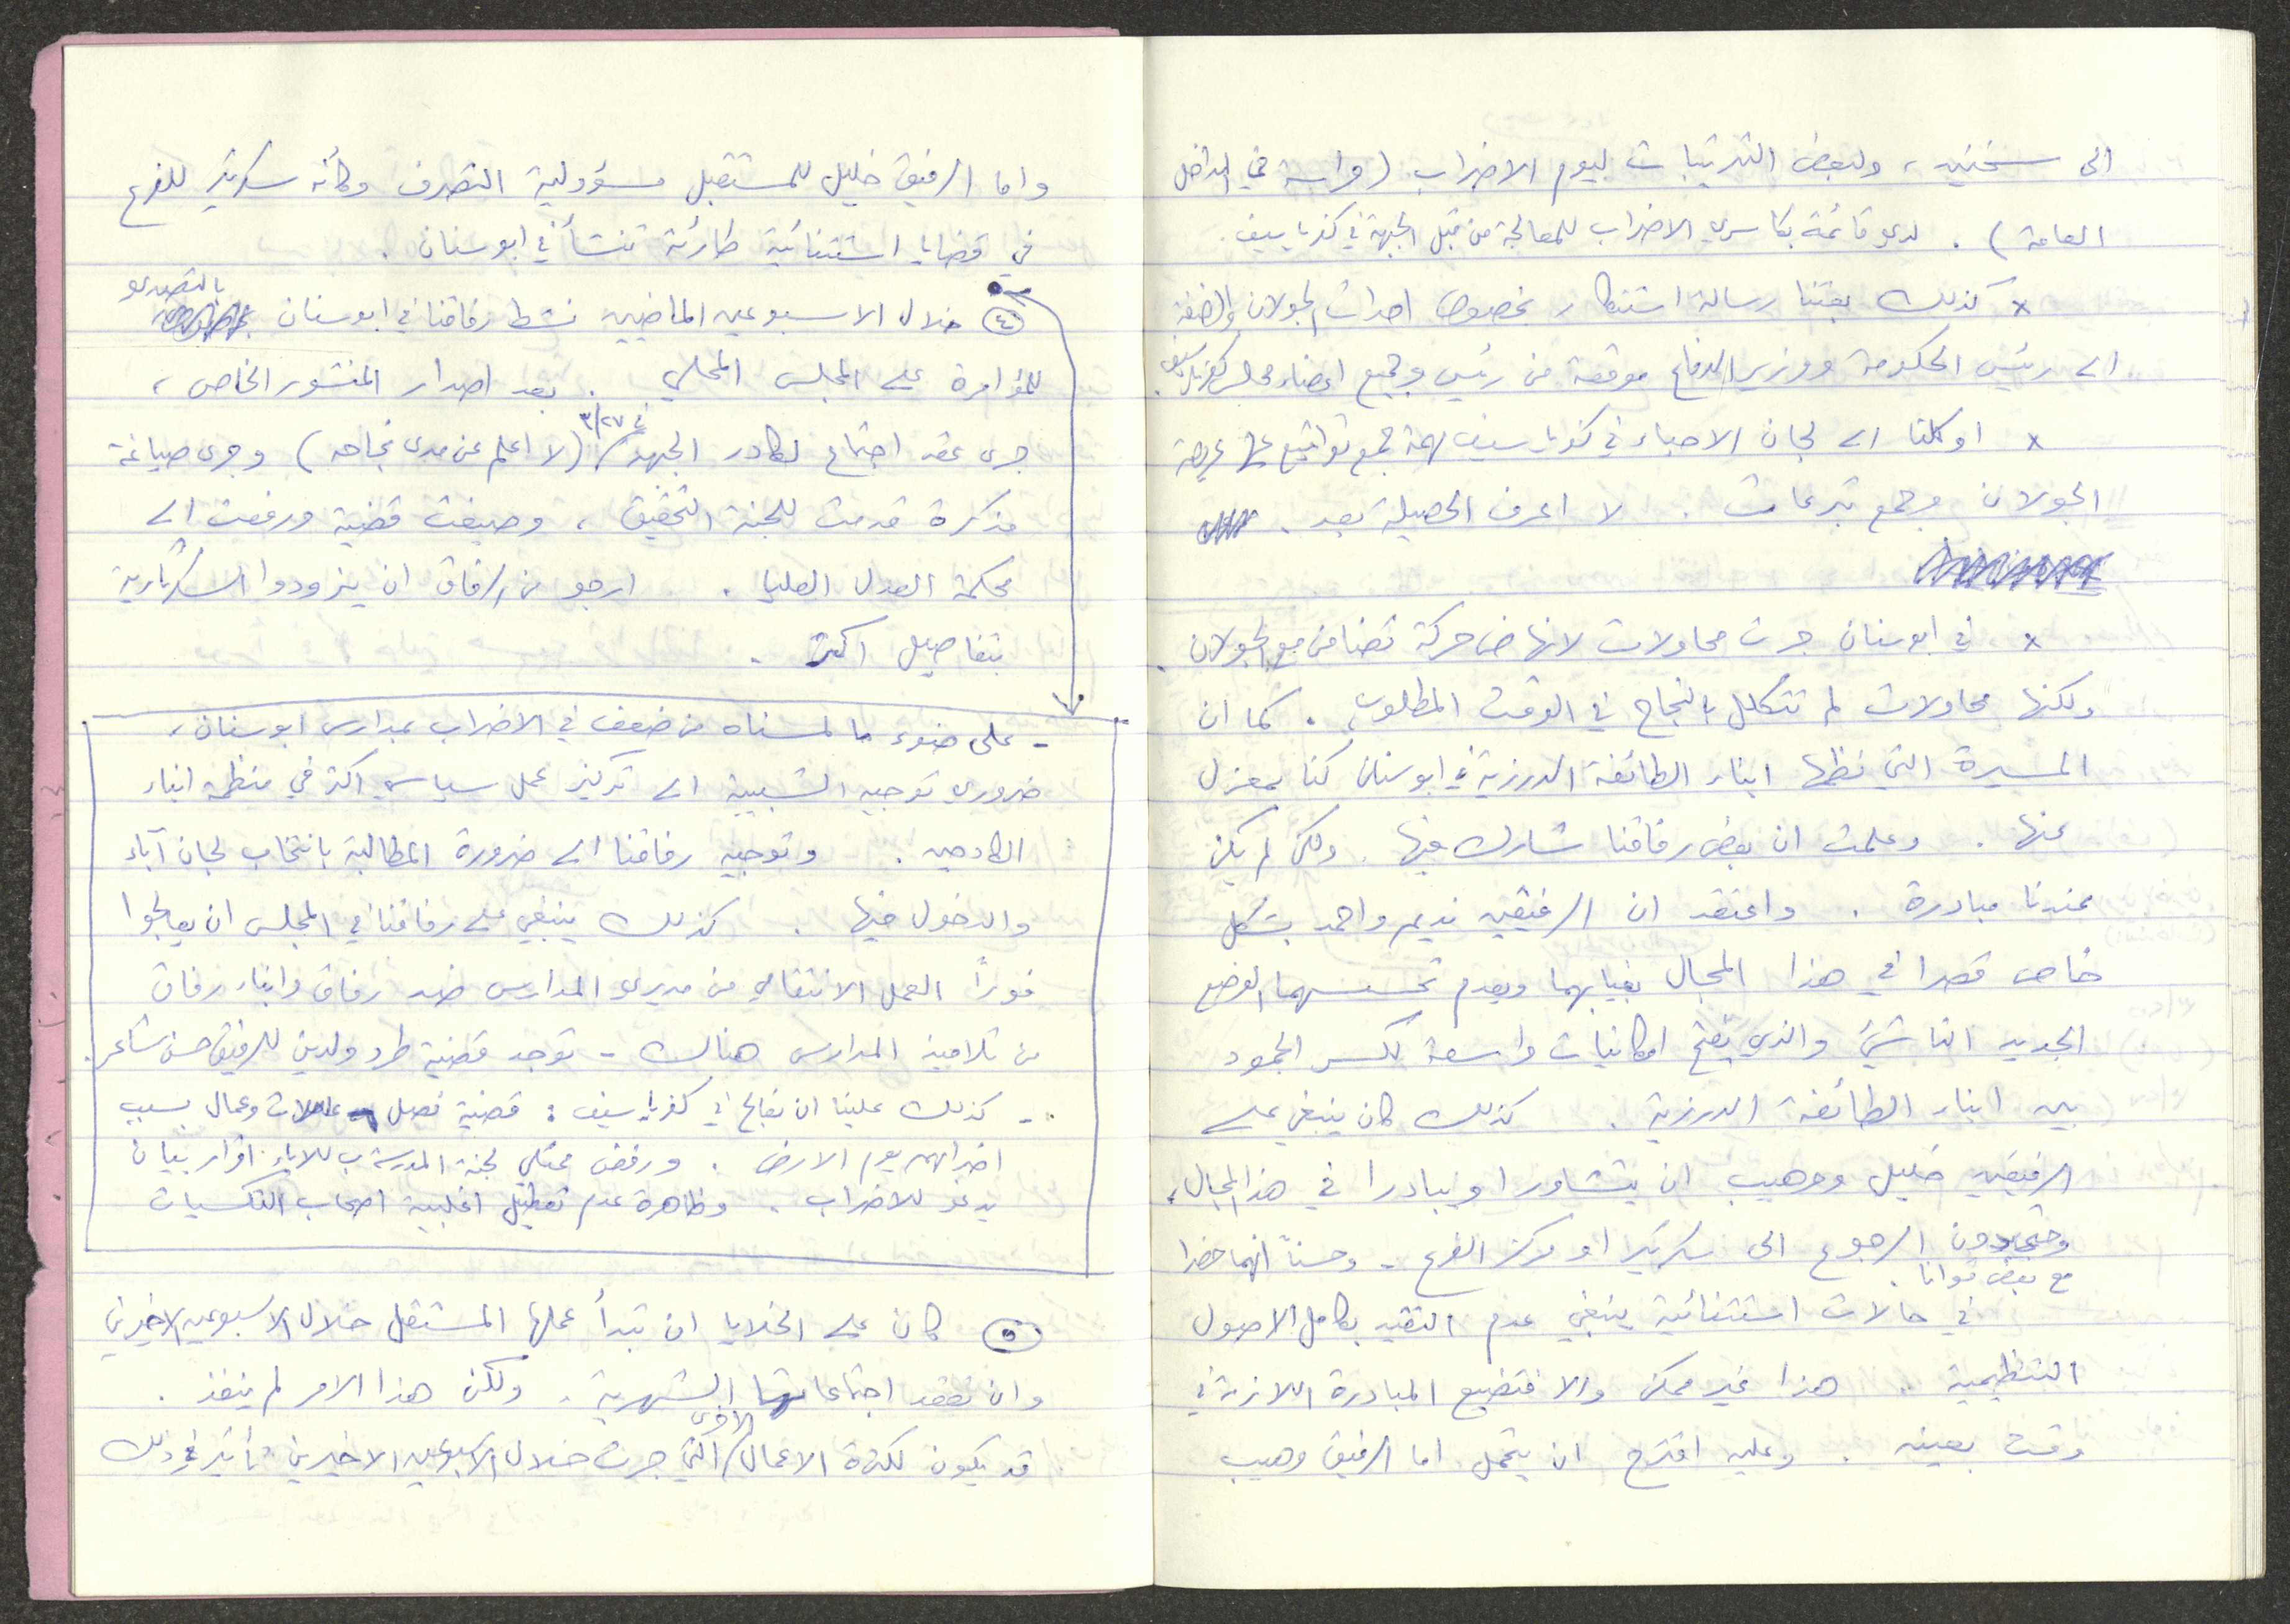 الى سخنين، ولبعض الترتيبات ليوم الاضراب (حراسة في المداخل
العامة). لدي قائمة بكاسري الاضراب للمعالجة من قبل الجبهة في كفرياسيف.
x كذلك بعثنا رسالة استنكار بخصوص احداث الجولان والضفة
الى رئيس الحكومة ووزير الدفاع موقعة من رئيس وجميع اعضاء مجلس كفرياسيف.
x اوكلنا الى لجان الاحياء في كفرياسيف مهمة جمع تواقيع على عريضة
الجولان وجمع تبرعات. لا اعرف الحصيلة بعد.
x في ابوسنان جرت محاولات لانهاض حركة تضامن مع الجولان.
ولكنها محاولات لم تتكلل بالنجاح في الوقت المطلوب. كما ان
المسيرة التي نظمها ابناء الطائفة الدرزية في ابوسنان كنا بمعزل
عنها. وعلمت ان بعض رفاقنا شارك فيها. ولكن لم يكن
عندنا مبادرة. واعتقد ان الرفيقين نديم واحمد بشكل
خاص قصرا في هذا المجال بغيابهما وبعدم تحسسهما الوضع
الجديد الناشئ والذي يفتح امكانيات واسعة لكسر الجمود
بين ابناء الطائفة الدرزية. كذلك كان ينبغي على
الرفيقين خليل ووهيب ان يتشاورا ويبادرا في هذا المجال،
وحتى بدون الرجوع الى سكرتير او مركز الفرع - وحسناً انهما حضرا
مع بعض قوانا.
في حالات استثنائية ينبغي عدم التقيد بكامل الاصول
التنظيمية. هذا غير ممكن والا فتضيع المبادرة اللازمة في
وقت بعينه. وعليه اقترح ان يتحمل اما الرفيق وهيب
واما الرفيق خليل للمستقبل مسؤولية التصرف وكأنه سكرتير للفرع
في قضايا استثنائية طارئة تنشأ في ابوسنان.
(٤) خلال الاسبوعين الماضيين نشط رفاقنا في ابوسنان بالتصدي
للمؤامرة على المجلس المحلي. بعد اصدار المنشور الخاص،
جرى عقد اجتماع لكادر الجبهة في ٣/٢٧ (لا اعلم عن مدى نجاحه) وجرى صياغة
مذكرة قدمت للجنة التحقيق، وصيغت قضية ورفعت الى
محكمة العدل العليا. ارجو من الرفاق ان يزودوا السكرتارية
بتفاصيل اكثر.
- على ضوء ما لمسناه من ضعف في الاضراب بمدارس ابوسنان،
ضروري توجيه الشبيبة الى تركيز عمل سياسي اكثر في منظمة ابناء
الكادحين. وتوجيه رفاقنا الى ضرورة المطالبة بانتخاب لجان آباء
والدخول فيها. كذلك ينبغي على رفاقنا في المجلس ان يعالجوا
فوراً العمل الانتقامي من مديري المدارس ضد رفاق وابناء رفاق
من تلاميذ المدارس هناك - توجد قضية طرد ولدين للرفيق حسن شاعر.
- كذلك علينا ان نعالج في كفرياسيف: قضية فصل عاملات وعمال بسبب
اضرابهم يوم الارض. ورفض ممثلي لجنة المدرسة ب للاباء اقرار بيان
يدعو للاضراب. وظاهرة عدم تعطيل اغلبية اصحاب التكسيات
(٥) كان على الخلايا ان تبدأ عملها المستقل خلال الاسبوعين الاخيرين
وان تعقد اجتماعاتها الشهرية. ولكن هذا الامر لم ينفذ.
قد يكون لكثرة الاعمال الاخرى التي جرت خلال الاسبوعين الاخيرين تأثير في ذلك